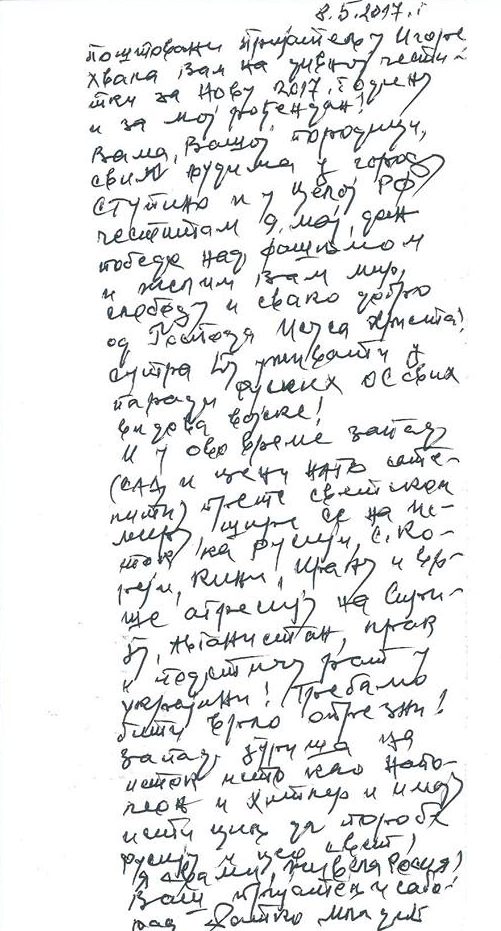 8.5.2017.г
поштовани пријатељу Игоре
хвала Вам на дивној чести-
тки за Нову 2017. годину
и за мој рођендан!
Вама, Вашој породици,
свим људима у граду
Ступино и у целој РФ
честитам 9. мај, дан
победе над фашизмом
и желим Вам мир,
слободу и свако добро
од Господа Исуса Христа!
сутра ћу уживати у
паради руских ОС свих
видова војске!
И у ово време запад
(САД и цели НАТО
прете светском
миру, шире се на ис-
ток, ка Русији, С. Ко-
реји, Кини, Ирану и вр-
ше агресију на Сири-
ју, Авганистан, Ирак
и подстичу рат у
украјини! Требамо
бити врло опрезни!
запад јуриша на
исток исто као Напо-
леон и Хитлер и имају
исти циљ да поробе
Русију и цео свет!
Я с вами, живела Росија!
Ваш пријатељ и сабо-
рац Ратко Младић